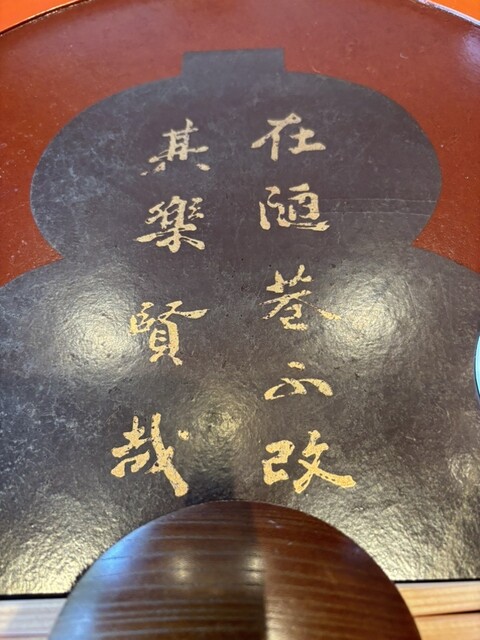 在陋巷不改
其樂賢哉